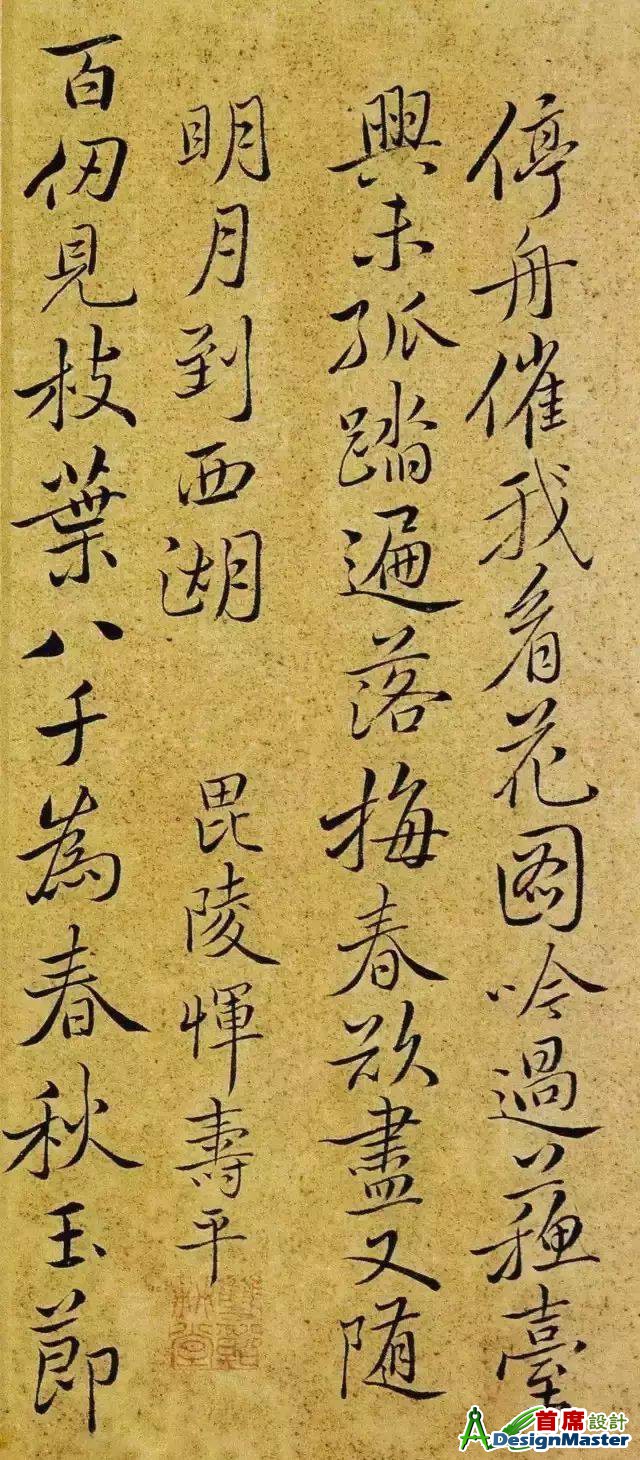 停舟催我看花圖吟過蘓臺
興未孤踏遍落梅春欲盡又随
明月到西湖 毘陵惲壽平
百仞見枝葉八千為春秋玉節
首席設計
ADesignMaster